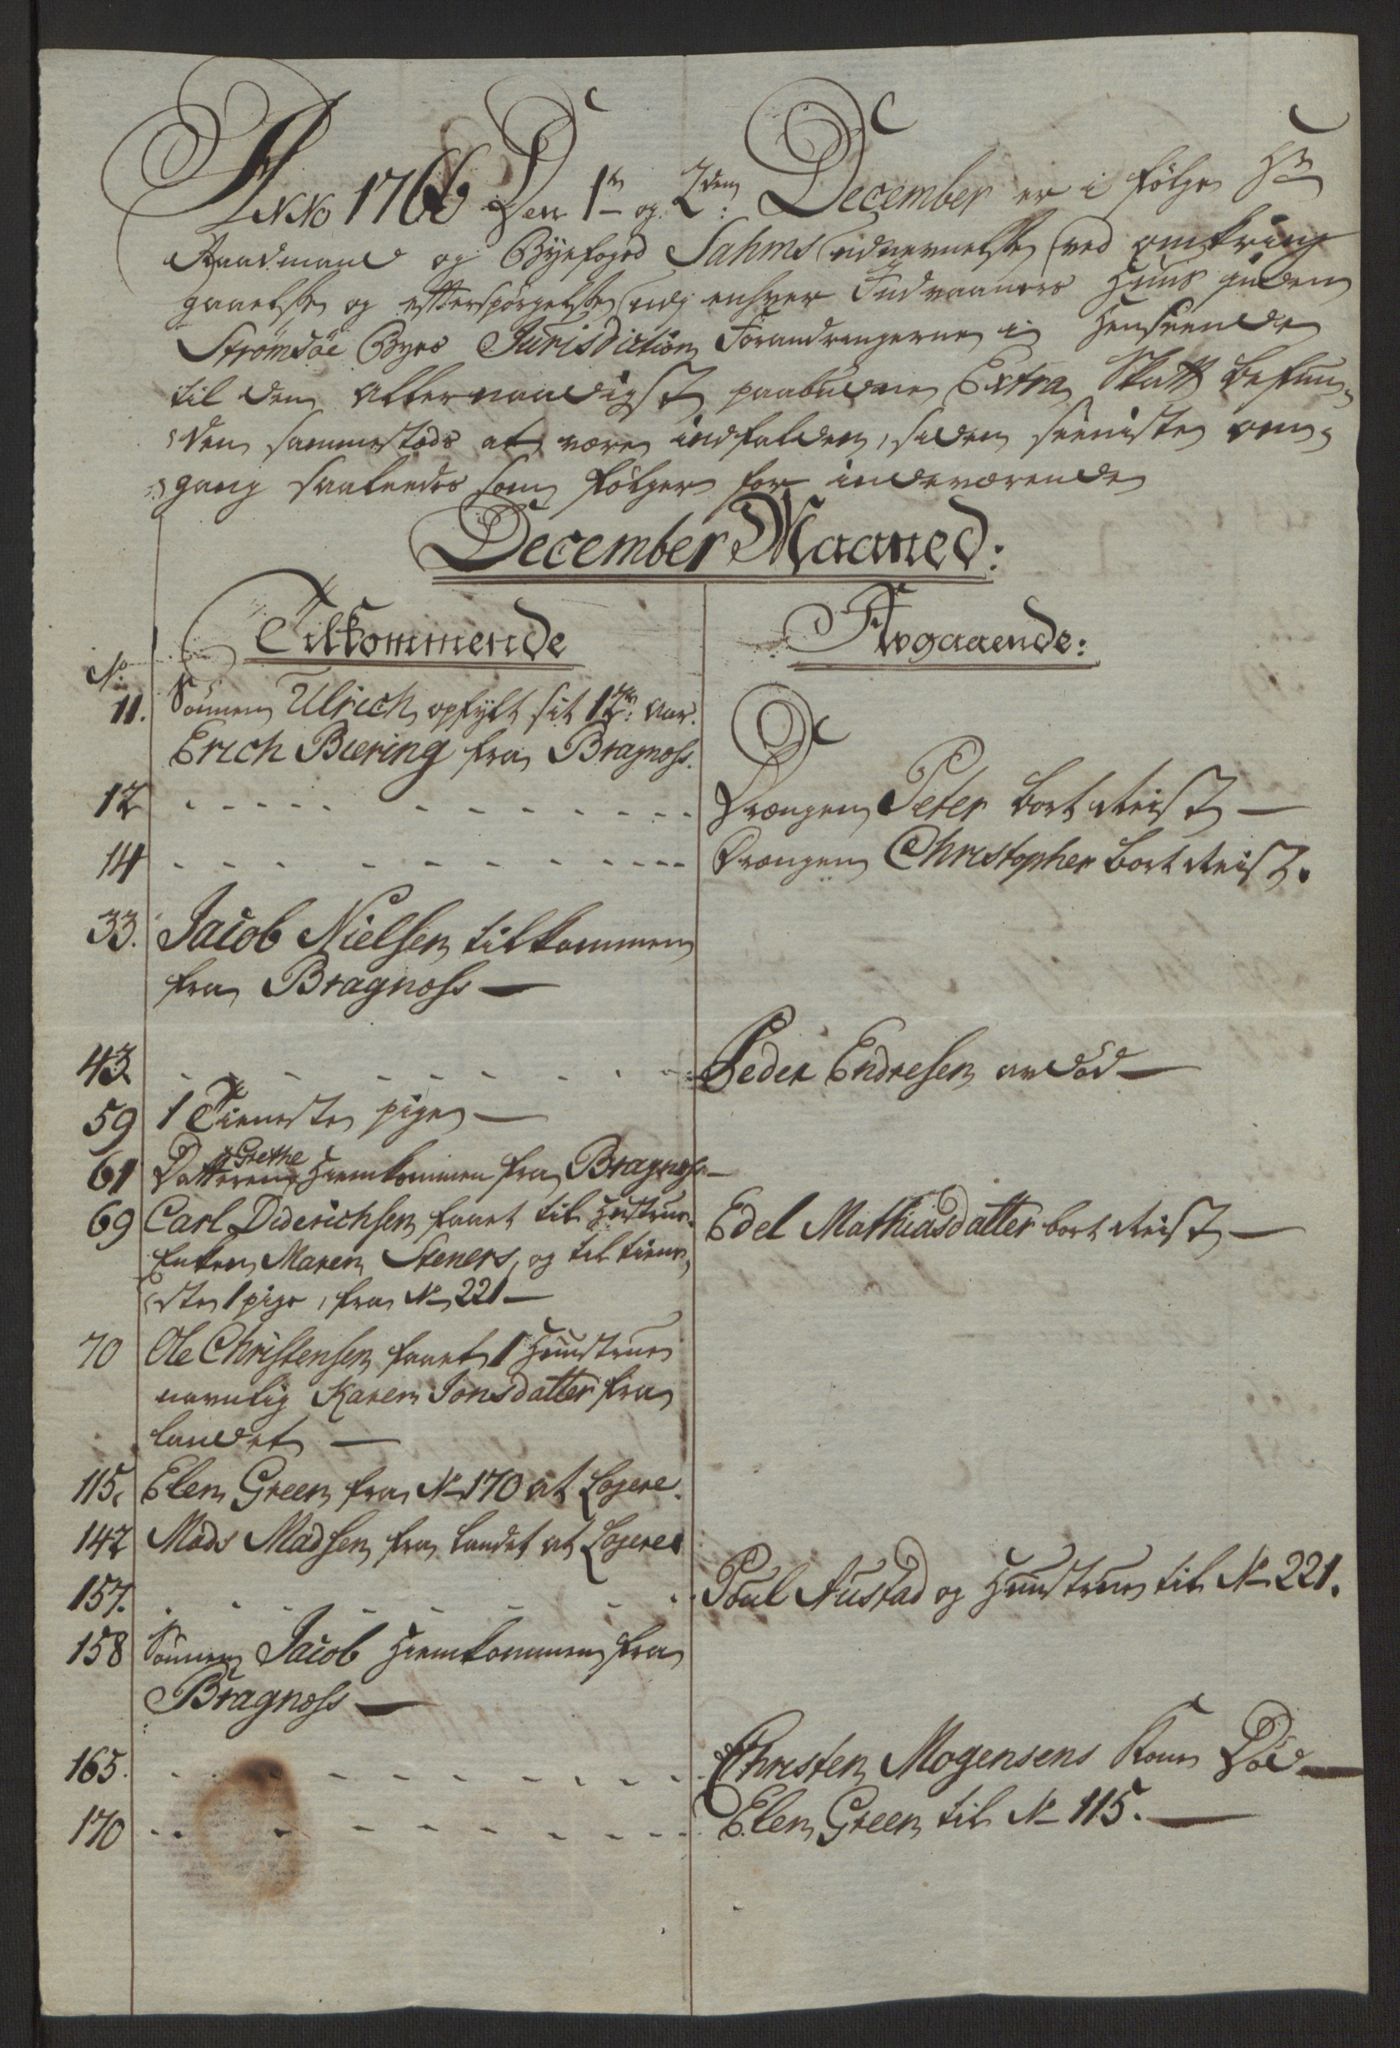 Anno 1766 Den 1te og 2den December er i følge Hr
Raadmand og Byefoged Sahms udnevnelse ved omkring
gaaelse og efterspørgelse udj enhver Indvaaners Huus inden
Strømsøe Byes Jurisdiction Forandringerne i Henseende
til den allernaadigst paabudne Extra Skatt befun-
den sammesteds at være indfalden, siden seeniste om-
gang saaledes som følger for indeværende
December Maaned:
Tilkommende Avgaaende:
No
11. Sønnen Ulrich opfylt sit 12te Aar.
Erich Biering fra Bragness.
12 - - - - - Drængen Peter bort Reist —
14 - - - - - Drængen Christopher bort Reist.
33. Jacob Nielsen tilkommen
fra Bragness —
43 - - - - - Peder Endresen avdød —
59 1 Tieneste pige —
61 Datteren Grethe Hiemkommen fra Bragness —
69 Carl Diderichsen faaet til Hustrue Edel Mathiasdatter bort Reist —
Enken Maren Steners, og til tiene-
ste 1 pige, fra No 221 —
70 Ole Christensen faaet 1 Huustrue
navnlig Karen Jonsdatter fra
landet —
115. Elen Green fra No 170 at Logere.
142 Mads Madsen fra landet at Logere
157. - - - - - Poul Austad og Huustrue til No 221.
158 Sønnen Jacob Hiemkommen fra
Bragness —
165. - - - - - Christen Mogensens Kone Død —
170 - - - - - Elen Green til No 115. —